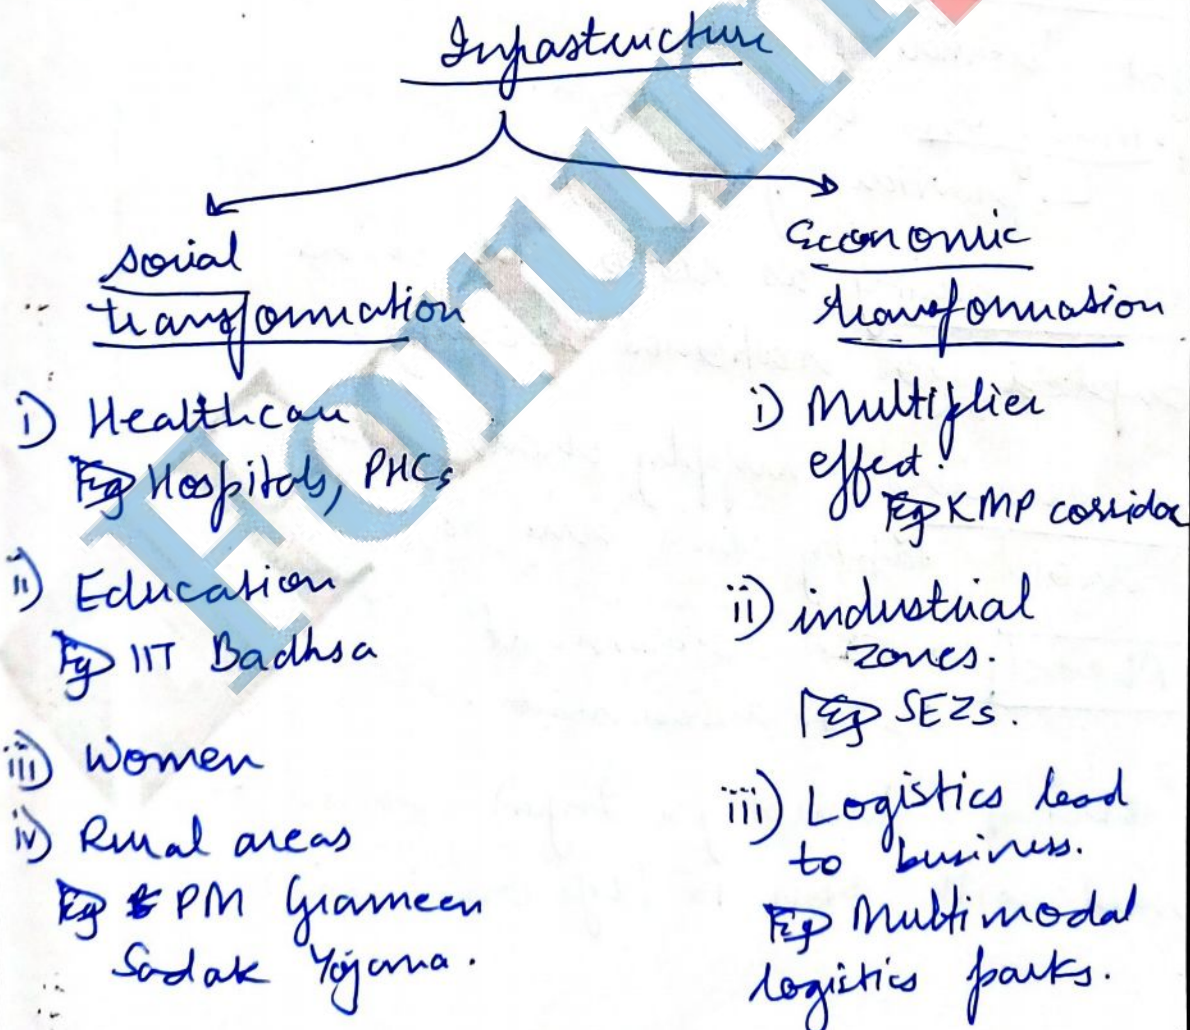 Infrastructure
social
transformation
i) Healthcare
Eg Hospitals, PHCs
ii) Education
Eg IIT Badhsa
iii) Women
iv) Rural areas
Eg PM Grameen
Sadak Yojana.
Economic
transformation
i) Multiplier
effect.
Eg KMP corridor
ii) industrial
zones.
Eg SEZs.
iii) Logistics lead
to business.
Eg Multimodal
logistics parks.
Forum